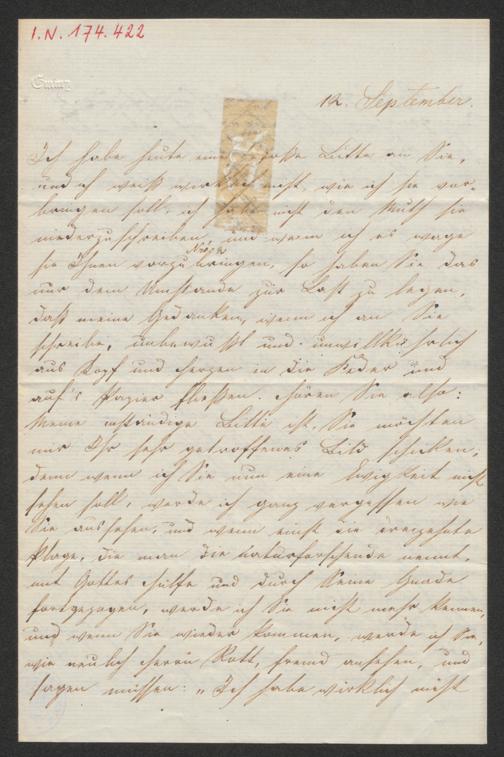 I.N. 174.422
Emmy
12. September.
Ich habe heute eine große Bitte an Sie,
und ich weiß wirklich nicht, wie ich sie vor-
bringen soll, ich habe nicht den Muth sie
niederzuschreiben, und wenn ich es wage
sie Ihnen vorzubringen, so haben Sie das
nur dem Umstande zur Last zu legen,
daß meine Gedanken, wenn ich an Sie
schreibe, unbewußt und unwillkürlich
aus Kopf und Herzen in die Feder und
auf's Papier fließen. Hören Sie also:
Meine inständige Bitte ist, Sie möchten
mir Ihr sehr getroffenes Bild schicken,
denn wenn ich Sie nun eine Ewigkeit nicht
sehen soll, werde ich ganz vergessen wie
Sie aussehen, und wenn einst die dreizehnte
Plage, die man die naturforschende nennt,
mit Gottes Hülfe und durch Seine Gnade
fortgezogen, werde ich Sie nicht mehr kennen,
und wenn Sie wieder kommen, werde ich Sie,
wie neulich Herrn Rott, fremd ansehen, und
sagen müssen: „Ich habe wirklich nicht